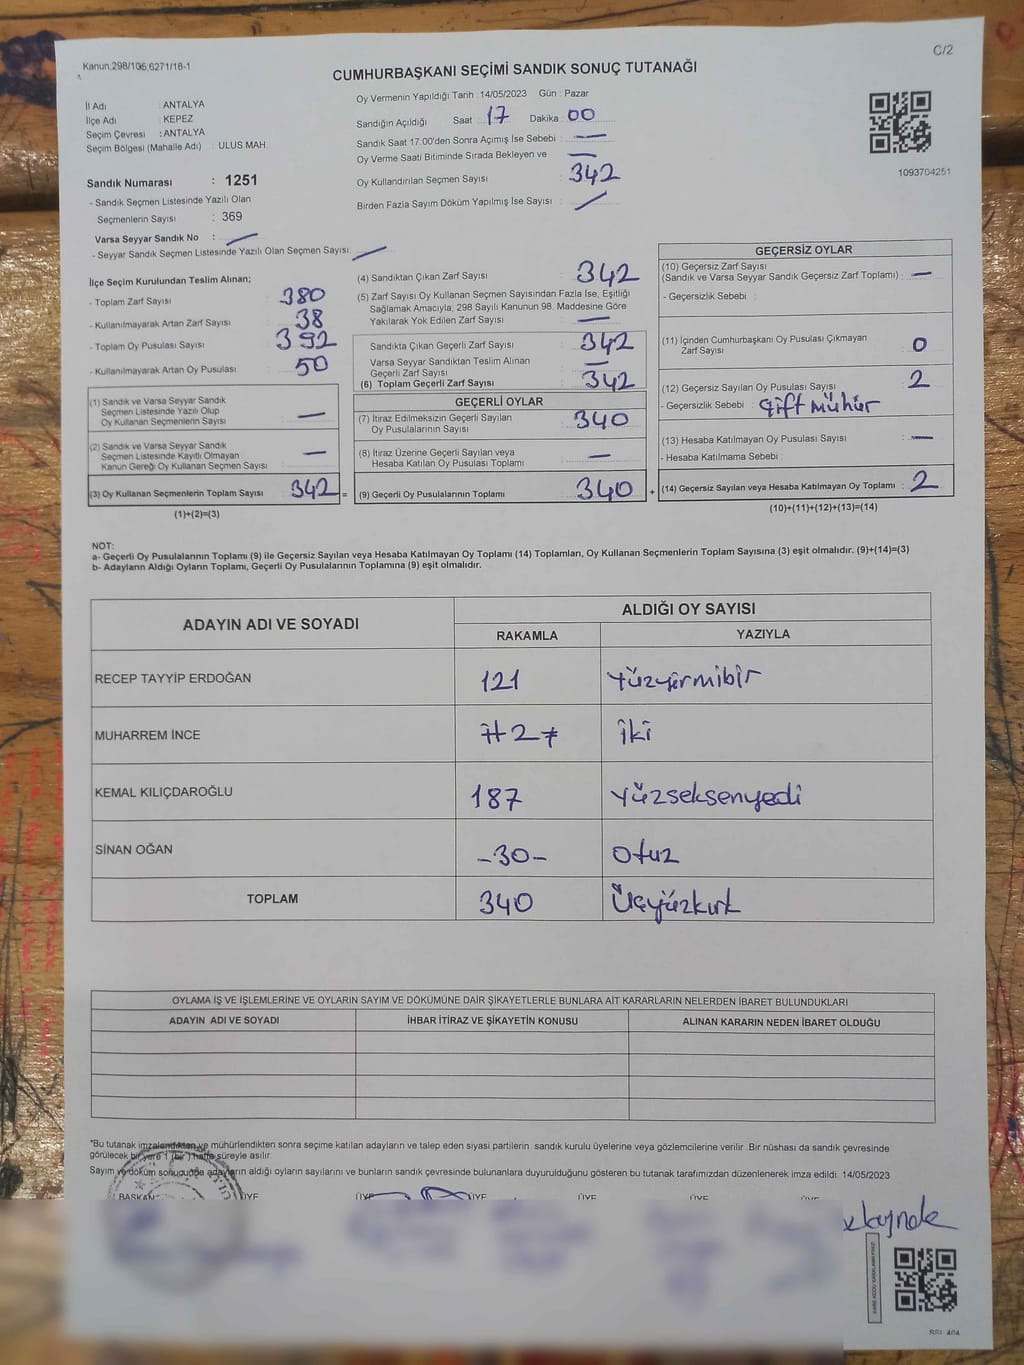 Kanun,298/106,6271/18-1
C/2
CUMHURBAŞKANI SEÇİMİ SANDIK SONUÇ TUTANAĞI
İl Adı : ANTALYA
İlçe Adı : KEPEZ
Seçim Çevresi : ANTALYA
Seçim Bölgesi (Mahalle Adı) : ULUS MAH.
Sandık Numarası : 1251
- Sandık Seçmen Listesinde Yazılı Olan
Seçmenlerin Sayısı : 369
Varsa Seyyar Sandık No : —
- Seyyar Sandık Seçmen Listesinde Yazılı Olan Seçmen Sayısı: —
Oy Vermenin Yapıldığı Tarih : 14/05/2023 Gün : Pazar
Sandığın Açıldığı Saat 17 Dakika : 00
Sandık Saat 17.00'den Sonra Açımış İse Sebebi : —
Oy Verme Saati Bitiminde Sırada Bekleyen ve —
Oy Kullandırılan Seçmen Sayısı : 342
Birden Fazla Sayım Döküm Yapılmış İse Sayısı : —
1093704251
İlçe Seçim Kurulundan Teslim Alınan;
- Toplam Zarf Sayısı : 380
- Kullanılmayarak Artan Zarf Sayısı : 38
- Toplam Oy Pusulası Sayısı : 392
- Kullanılmayarak Artan Oy Pusulası : 50
(1) Sandık ve Varsa Seyyar Sandık
Seçmen Listesinde Yazılı Olup
Oy Kullanan Seçmenlerin Sayısı : —
(2) Sandık ve Varsa Seyyar Sandık
Seçmen Listesinde Kayıtlı Olmayan
Kanun Gereği Oy Kullanan Seçmen Sayısı : —
(3) Oy Kullanan Seçmenlerin Toplam Sayısı : 342 =
(1)+(2)=(3)
(4) Sandıktan Çıkan Zarf Sayısı : 342
(5) Zarf Sayısı Oy Kullanan Seçmen Sayısından Fazla İse, Eşitliği
Sağlamak Amacıyla, 298 Sayılı Kanunun 98. Maddesine Göre
Yakılarak Yok Edilen Zarf Sayısı : —
Sandıkta Çıkan Geçerli Zarf Sayısı : 342
Varsa Seyyar Sandıktan Teslim Alınan
Geçerli Zarf Sayısı : —
(6) Toplam Geçerli Zarf Sayısı : 342
GEÇERLİ OYLAR
(7) İtiraz Edilmeksizin Geçerli Sayılan
Oy Pusulalarının Sayısı : 340
(8) İtiraz Üzerine Geçerli Sayılan veya
Hesaba Katılan Oy Pusulası Toplamı : —
(9) Geçerli Oy Pusulalarının Toplamı : 340 +
GEÇERSİZ OYLAR
(10) Geçersiz Zarf Sayısı
(Sandık ve Varsa Seyyar Sandık Geçersiz Zarf Toplamı) : —
- Geçersizlik Sebebi :
(11) İçinden Cumhurbaşkanı Oy Pusulası Çıkmayan
Zarf Sayısı : 0
(12) Geçersiz Sayılan Oy Pusulası Sayısı : 2
- Geçersizlik Sebebi : Çift Mühür
(13) Hesaba Katılmayan Oy Pusulası Sayısı : —
- Hesaba Katılmama Sebebi :
(14) Geçersiz Sayılan veya Hesaba Katılmayan Oy Toplamı : 2
(10)+(11)+(12)+(13)=(14)
NOT:
a- Geçerli Oy Pusulalarının Toplamı (9) ile Geçersiz Sayılan veya Hesaba Katılmayan Oy Toplamı (14) Toplamları, Oy Kullanan Seçmenlerin Toplam Sayısına (3) eşit olmalıdır. (9)+(14)=(3)
b- Adayların Aldığı Oyların Toplamı, Geçerli Oy Pusulalarının Toplamına (9) eşit olmalıdır.
ADAYIN ADI VE SOYADI ALDIĞI OY SAYISI
RAKAMLA YAZIYLA
RECEP TAYYİP ERDOĞAN 121 Yüzyirmibir
MUHARREM İNCE 2 iki
KEMAL KILIÇDAROĞLU 187 Yüzseksenyedi
SİNAN OĞAN -30- Otuz
TOPLAM 340 Üçyüzkırk
OYLAMA İŞ VE İŞLEMLERİNE VE OYLARIN SAYIM VE DÖKÜMÜNE DAİR ŞİKAYETLERLE BUNLARA AİT KARARLARIN NELERDEN İBARET BULUNDUKLARI
ADAYIN ADI VE SOYADI İHBAR İTİRAZ VE ŞİKAYETİN KONUSU ALINAN KARARIN NEDEN İBARET OLDUĞU
*Bu tutanak imzalandıktan ve mühürlendikten sonra seçime katılan adayların ve talep eden siyasi partilerin sandık kurulu üyelerine veya gözlemcilerine verilir. Bir nüshası da sandık çevresinde
görülecek bir yere 1 (bir) hafta süreyle asılır.
Sayım ve döküm sonucunda adayların aldığı oyların sayılarını ve bunların sandık çevresinde bulunanlara duyurulduğunu gösteren bu tutanak tarafımızdan düzenlenerek imza edildi. 14/05/2023
BAŞKAN ÜYE ÜYE ÜYE ÜYE ÜYE ÜYE